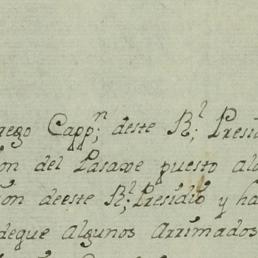 Cappn; deste Rl; Presid
on del Pasaxe puesto al
ion deeste Rl; Presidio y ha
deque algunos Arrimados